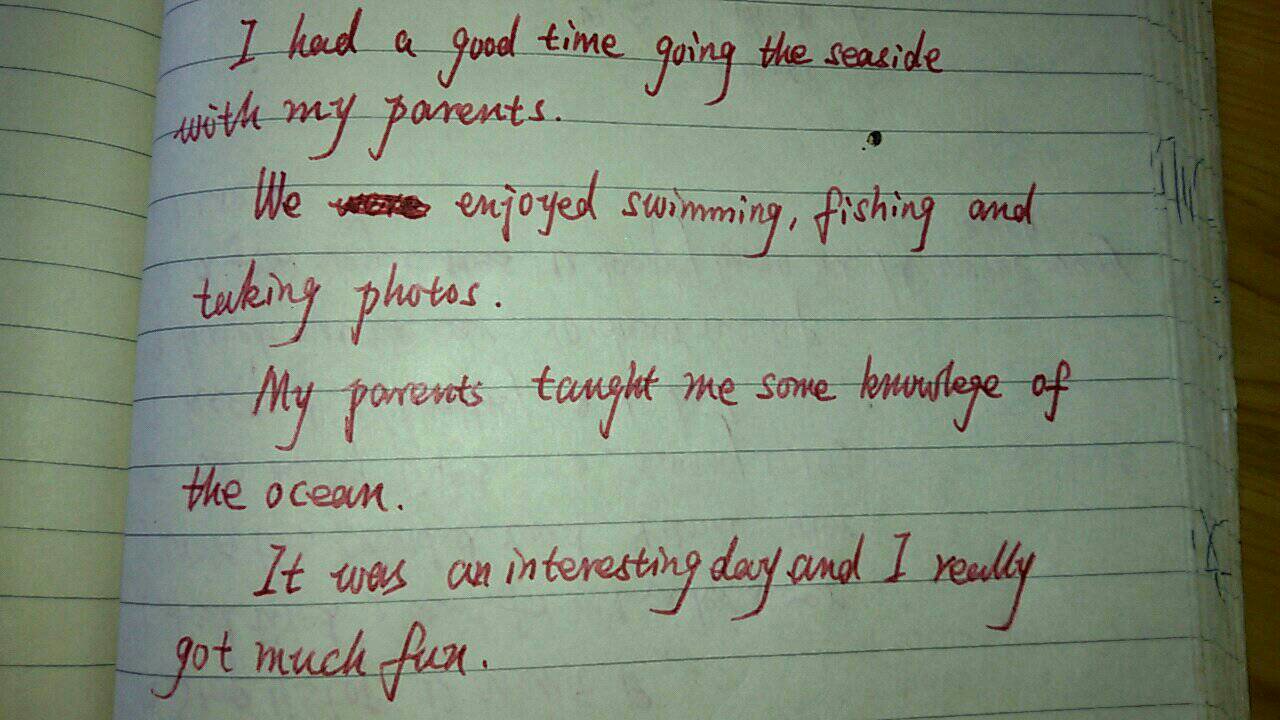 I had a good time going the seaside
with my parents.
We enjoyed swimming, fishing and
taking photos.
My parents taught me some knowlege of
the ocean.
It was an interesting day and I really
got much fun.